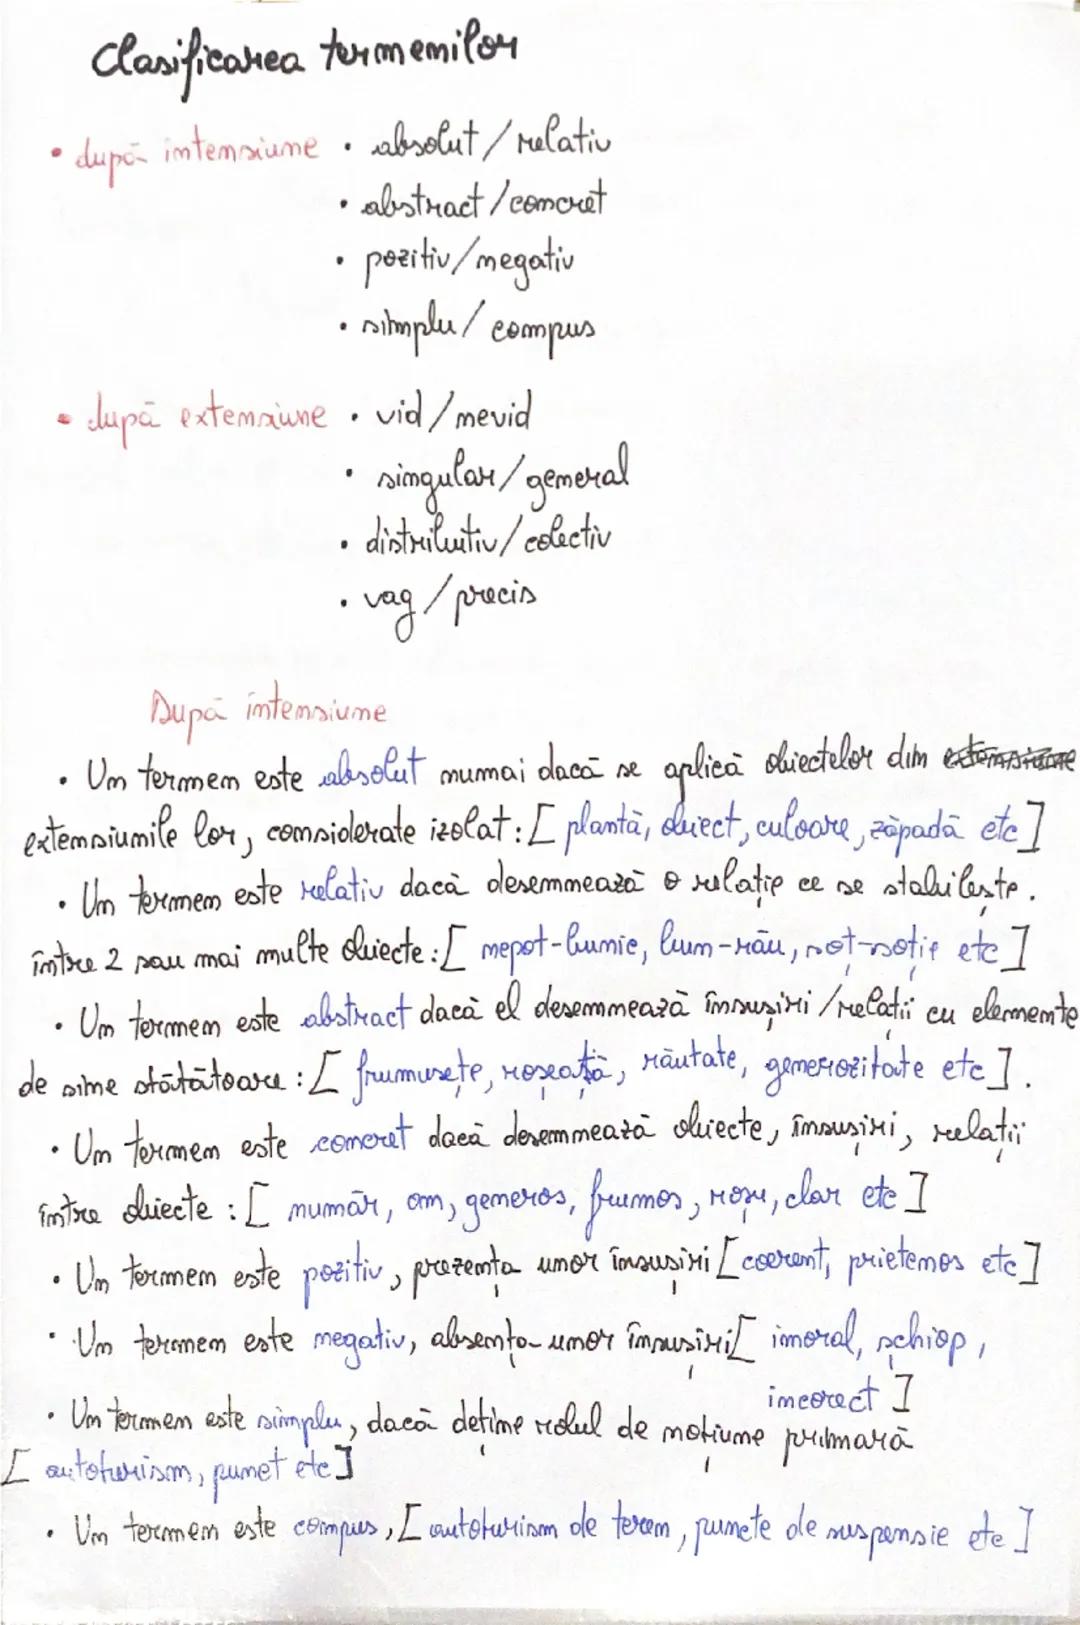 Clasificarea termenilor
• după intensiune • absolut / relativ
• abstract / concret
• pozitiv / negativ
• simplu / compus
• după extensiune • vid / nevid
• singular / general
• distributiv / colectiv
• vag / precis
După intensiune
• Un termen este absolut numai dacă se aplică obiectelor din extensiune
extensiunile lor, considerate izolat: [ plantă, obiect, culoare, zăpadă etc ]
• Un termen este relativ dacă desemnează o relație ce se stabilește.
între 2 sau mai multe obiecte: [ nepot-bunic, bun-rău, soț-soție etc ]
• Un termen este abstract dacă el desemnează însușiri / relații cu elemente
de sine stătătoare : [ frumusețe, roșeață, răutate, generozitate etc ].
• Un termen este concret dacă desemnează obiecte, însușiri, relații
între obiecte : [ număr, om, generos, frumos, roșu, clar etc ]
• Un termen este pozitiv, prezența unor însușiri [ coerent, prietenos etc ]
• Un termen este negativ, absența unor însușiri [ imoral, șchiop,
incorect ]
• Un termen este simplu, dacă deține rolul de noțiune primară
[ autoturism, punct etc ]
• Un termen este compus, [ autoturism de teren, puncte de suspensie etc ]